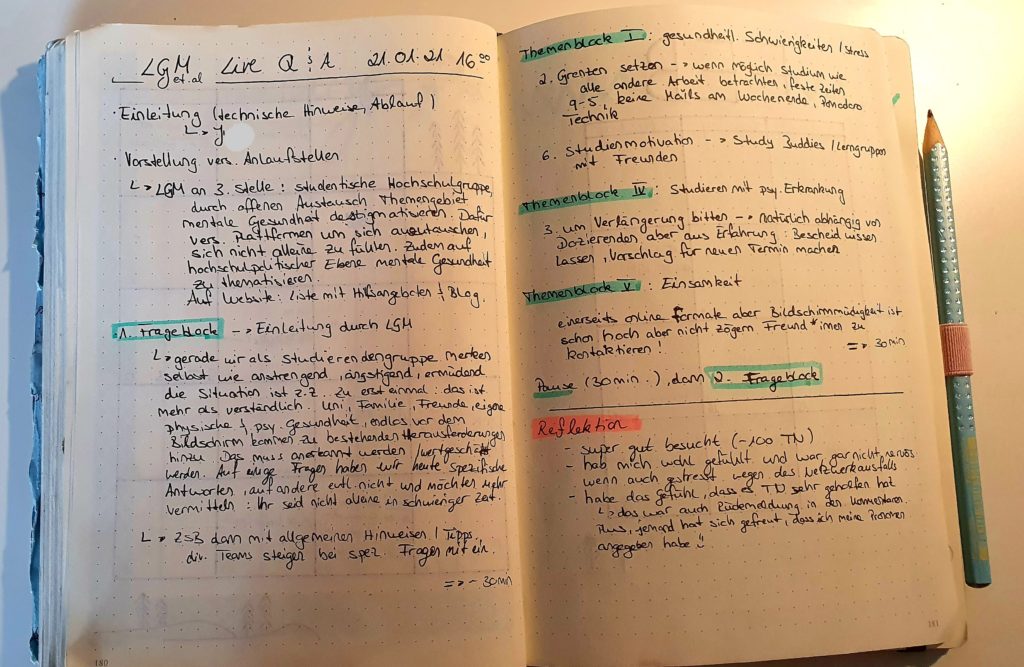 LGM et.al Live Q & A 21.01.21 16⁰⁰
· Einleitung (technische Hinweise, Ablauf)
↳ J
· Vorstellung vers. Anlaufstellen
↳ LGM an 3. Stelle: studentische Hochschulgruppe,
durch offenen Austausch Themengebiet
mentale Gesundheit destigmatisieren. Dafür
vers. Plattformen um sich auszutauschen,
sich nicht alleine zu fühlen. Zudem auf
hochschulpolitischer Ebene mentale Gesundheit
zu thematisieren.
Auf Website: Liste mit Hilfsangeboten & Blog
1. Frageblock --> Einleitung durch LGM
↳ gerade wir als Studierendengruppe merken
selbst wie anstrengend, ängstigend, ermüdend
die Situation ist z.Z.. Zu erst einmal: das ist
mehr als verständlich. Uni, Familie, Freunde, eigene
physische & psy. Gesundheit, endlos vor dem
Bildschirm kommen zu bestehenden Herausforderungen
hinzu. Das muss anerkannt werden / wertgeschätzt
werden. Auf einige Fragen haben wir heute spezifische
Antworten, auf andere evtl. nicht und möchten mehr
vermitteln: Ihr seid nicht alleine in schwieriger Zeit.
↳ ZSB dann mit allgemeinen Hinweisen / Tipps
div. Teams steigen bei spez. Fragen mit ein.
=> ~ 30min
180
Themenblock I: gesundheitl. Schwierigkeiten / Stress
2. Grenzen setzen --> wenn möglich Studium wie
alle andere Arbeit betrachten, feste Zeiten
9-5, keine Mails am Wochenende, Pomodoro
Technik
6. Studienmotivation --> Study Buddies / Lerngruppen
mit Freunden
Themenblock IV: Studieren mit psy. Erkrankung
3. um Verlängerung bitten --> natürlich abhängig von
Dozierenden, aber aus Erfahrung: Bescheid wissen
lassen, Vorschlag für neuen Termin machen
Themenblock V: Einsamkeit
einerseits online Formate aber Bildschirmmüdigkeit ist
schon hoch aber nicht zögern Freund*innen zu
kontaktieren!
=> 30min
Pause (30min.), dann 2. Frageblock
Reflektion
- super gut besucht (~100 TN)
- hab mich wohl gefühlt und war gar nicht nervös
wenn auch gestresst wegen des Netzwerkausfalls
- habe das Gefühl, dass es TN sehr geholfen hat
↳ das war auch Rückmeldung in den Kommentaren.
Plus, jemand hat sich gefreut, dass ich meine Pronomen
angegeben habe :)
181